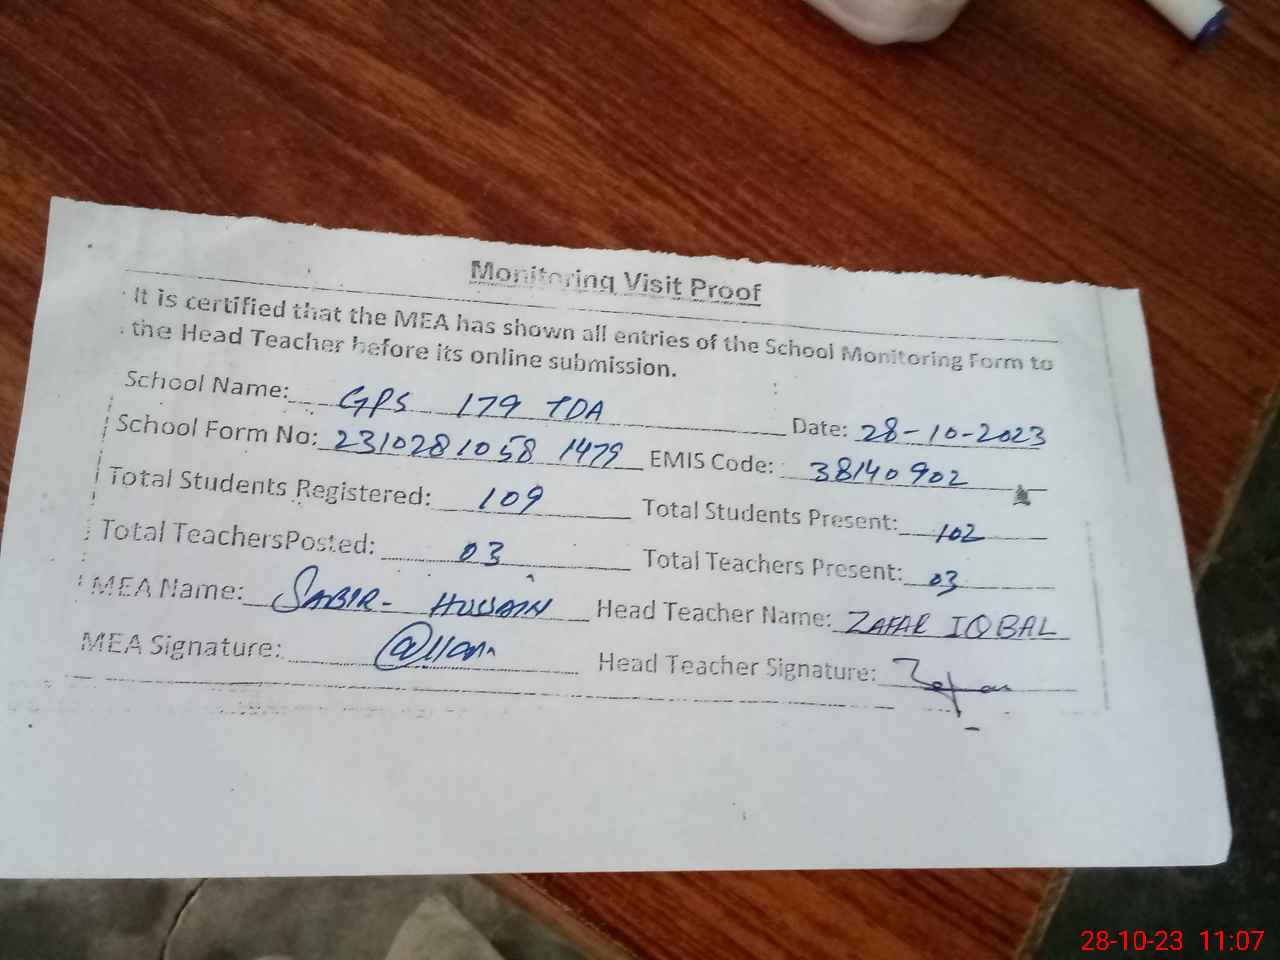 Monitoring Visit Proof
It is certified that the MEA has shown all entries of the School Monitoring Form to
the Head Teacher before its online submission.
School Name: GPS 179 TDA Date: 28-10-2023
School Form No: 2310281058 1479 EMIS Code: 38140902
Total Students Registered: 109 Total Students Present: 102
Total TeachersPosted: 03 Total Teachers Present: 03
MEA Name: SABIR- HUSSAIN Head Teacher Name: ZAFAR IQBAL
MEA Signature: Head Teacher Signature: Zafar
28-10-23 11:07